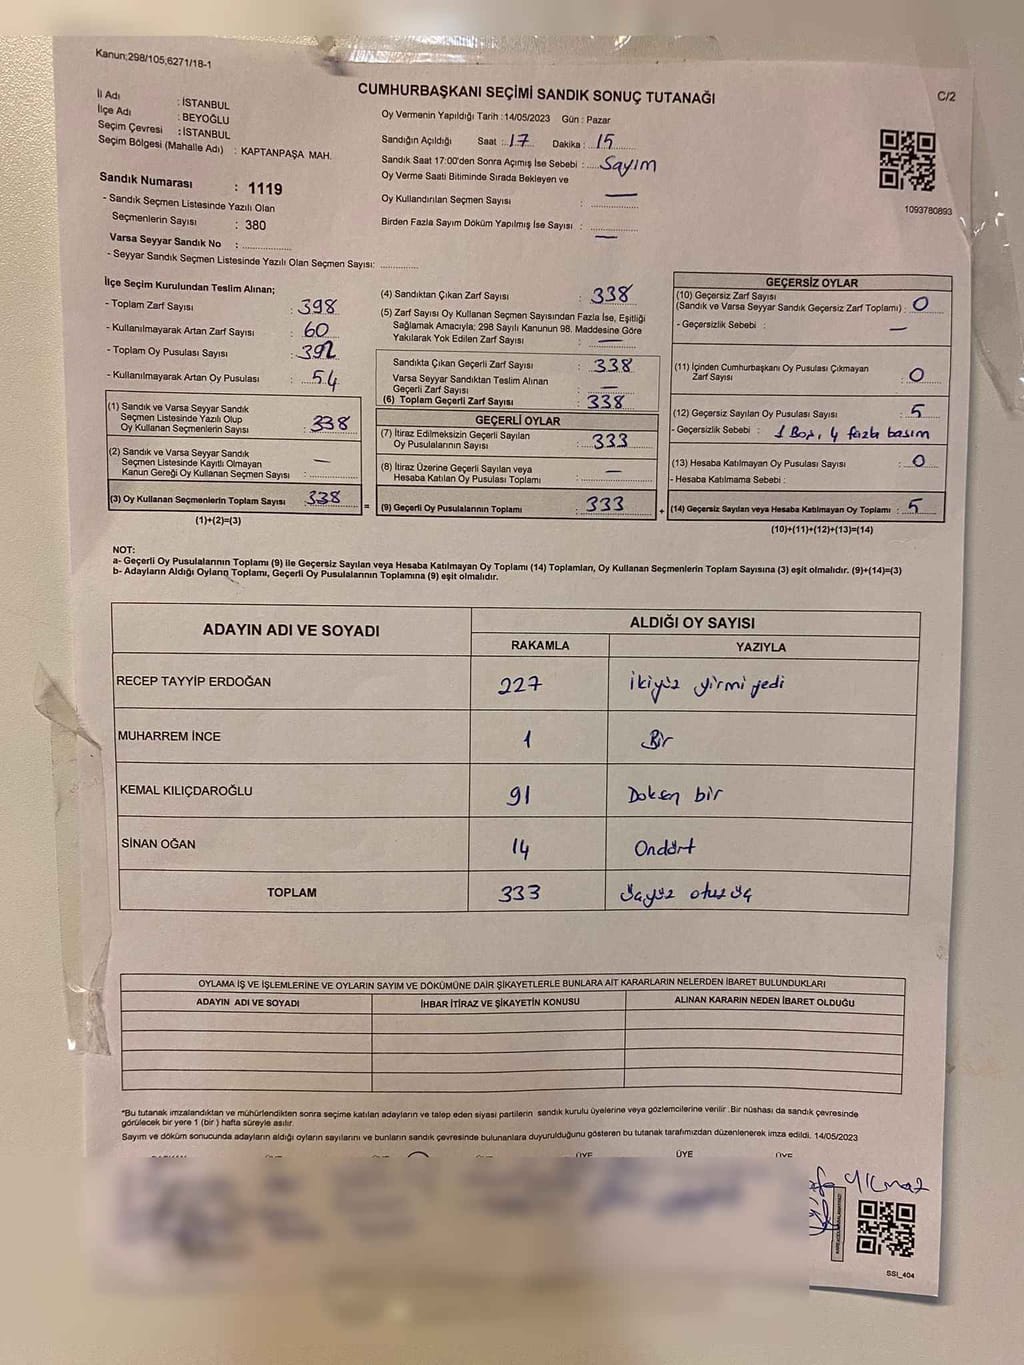 Kanun;298/105,6271/18-1
CUMHURBAŞKANI SEÇİMİ SANDIK SONUÇ TUTANAĞI
C/2
İl Adı : İSTANBUL
İlçe Adı : BEYOĞLU
Seçim Çevresi : İSTANBUL
Seçim Bölgesi (Mahalle Adı) : KAPTANPAŞA MAH.
Sandık Numarası : 1119
- Sandık Seçmen Listesinde Yazılı Olan
Seçmenlerin Sayısı : 380
Varsa Seyyar Sandık No :
- Seyyar Sandık Seçmen Listesinde Yazılı Olan Seçmen Sayısı:
Oy Vermenin Yapıldığı Tarih : 14/05/2023 Gün : Pazar
Sandığın Açıldığı Saat : 17 Dakika : 15
Sandık Saat 17:00'den Sonra Açımış İse Sebebi : Sayım
Oy Verme Saati Bitiminde Sırada Bekleyen ve
Oy Kullandırılan Seçmen Sayısı : —
Birden Fazla Sayım Döküm Yapılmış İse Sayısı : —
1093780893
İlçe Seçim Kurulundan Teslim Alınan;
- Toplam Zarf Sayısı : 398
- Kullanılmayarak Artan Zarf Sayısı : 60
- Toplam Oy Pusulası Sayısı : 392
- Kullanılmayarak Artan Oy Pusulası : 54
(1) Sandık ve Varsa Seyyar Sandık
Seçmen Listesinde Yazılı Olup
Oy Kullanan Seçmenlerin Sayısı : 338
(2) Sandık ve Varsa Seyyar Sandık
Seçmen Listesinde Kayıtlı Olmayan
Kanun Gereği Oy Kullanan Seçmen Sayısı : —
(3) Oy Kullanan Seçmenlerin Toplam Sayısı : 338 =
(1)+(2)=(3)
(4) Sandıktan Çıkan Zarf Sayısı : 338
(5) Zarf Sayısı Oy Kullanan Seçmen Sayısından Fazla İse, Eşitliği
Sağlamak Amacıyla; 298 Sayılı Kanunun 98. Maddesine Göre
Yakılarak Yok Edilen Zarf Sayısı : —
Sandıkta Çıkan Geçerli Zarf Sayısı : 338
Varsa Seyyar Sandıktan Teslim Alınan
Geçerli Zarf Sayısı : —
(6) Toplam Geçerli Zarf Sayısı : 338
GEÇERLİ OYLAR
(7) İtiraz Edilmeksizin Geçerli Sayılan
Oy Pusulalarının Sayısı : 333
(8) İtiraz Üzerine Geçerli Sayılan veya
Hesaba Katılan Oy Pusulası Toplamı : —
(9) Geçerli Oy Pusulalarının Toplamı : 333 +
GEÇERSİZ OYLAR
(10) Geçersiz Zarf Sayısı
(Sandık ve Varsa Seyyar Sandık Geçersiz Zarf Toplamı) : 0
- Geçersizlik Sebebi : —
(11) İçinden Cumhurbaşkanı Oy Pusulası Çıkmayan
Zarf Sayısı : 0
(12) Geçersiz Sayılan Oy Pusulası Sayısı : 5
- Geçersizlik Sebebi : 1 Boş, 4 fazla basım
(13) Hesaba Katılmayan Oy Pusulası Sayısı : 0
- Hesaba Katılmama Sebebi :
(14) Geçersiz Sayılan veya Hesaba Katılmayan Oy Toplamı : 5
(10)+(11)+(12)+(13)=(14)
NOT:
a- Geçerli Oy Pusulalarının Toplamı (9) ile Geçersiz Sayılan veya Hesaba Katılmayan Oy Toplamı (14) Toplamları, Oy Kullanan Seçmenlerin Toplam Sayısına (3) eşit olmalıdır. (9)+(14)=(3)
b- Adayların Aldığı Oyların Toplamı, Geçerli Oy Pusulalarının Toplamına (9) eşit olmalıdır.
ADAYIN ADI VE SOYADI ALDIĞI OY SAYISI
RAKAMLA YAZIYLA
RECEP TAYYİP ERDOĞAN 227 İkiyüz yirmi yedi
MUHARREM İNCE 1 Bir
KEMAL KILIÇDAROĞLU 91 Doksen bir
SİNAN OĞAN 14 Ondört
TOPLAM 333 Üçyüz otuz üç
OYLAMA İŞ VE İŞLEMLERİNE VE OYLARIN SAYIM VE DÖKÜMÜNE DAİR ŞİKAYETLERLE BUNLARA AİT KARARLARIN NELERDEN İBARET BULUNDUKLARI
ADAYIN ADI VE SOYADI İHBAR İTİRAZ VE ŞİKAYETİN KONUSU ALINAN KARARIN NEDEN İBARET OLDUĞU
*Bu tutanak imzalandıktan ve mühürlendikten sonra seçime katılan adayların ve talep eden siyasi partilerin sandık kurulu üyelerine veya gözlemcilerine verilir .Bir nüshası da sandık çevresinde
görülecek bir yere 1 (bir ) hafta süreyle asılır.
Sayım ve döküm sonucunda adayların aldığı oyların sayılarını ve bunların sandık çevresinde bulunanlara duyurulduğunu gösteren bu tutanak tarafımızdan düzenlenerek imza edildi. 14/05/2023
ÜYE ÜYE ÜYE
SSI_404